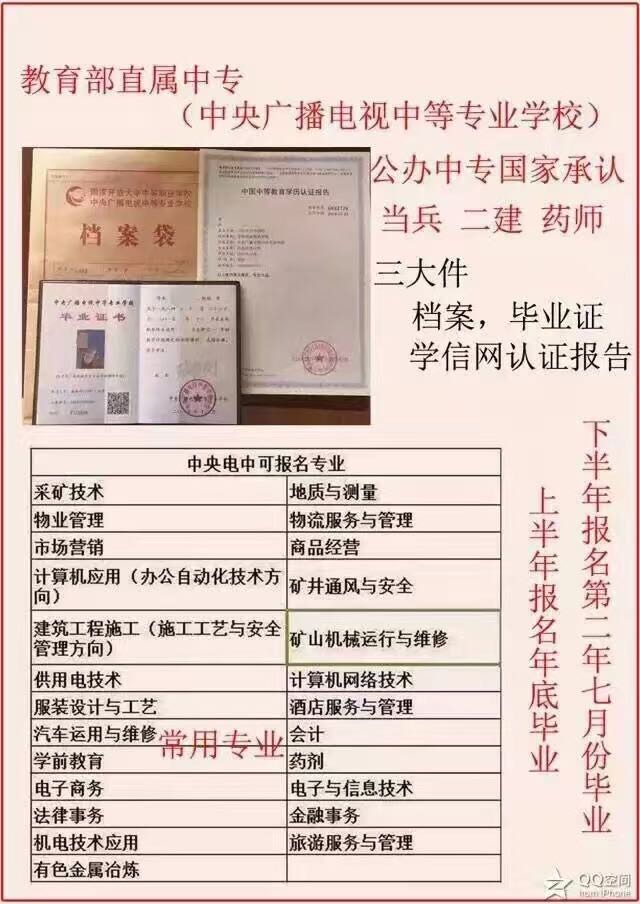 教育部直属中专
（中央广播电视中等专业学校）
公办中专国家承认
当兵 二建 药师
三大件
档案，毕业证
学信网认证报告
国家开放大学中等职业学校
中央广播电视中等专业学校
档案袋
中国中等教育学历认证报告
中央广播电视中等专业学校
毕业证书
下半年报名第二年七月份毕业
上半年报名年底毕业
中央电中可报名专业
采矿技术 地质与测量
物业管理 物流服务与管理
市场营销 商品经营
计算机应用（办公自动化技术方向） 矿井通风与安全
建筑工程施工（施工工艺与安全管理方向） 矿山机械运行与维修
供用电技术 计算机网络技术
服装设计与工艺 酒店服务与管理
汽车运用与维修 会计
常用专业
学前教育 药剂
电子商务 电子与信息技术
法律事务 金融事务
机电技术应用 旅游服务与管理
有色金属冶炼
QQ空间
from iPhone